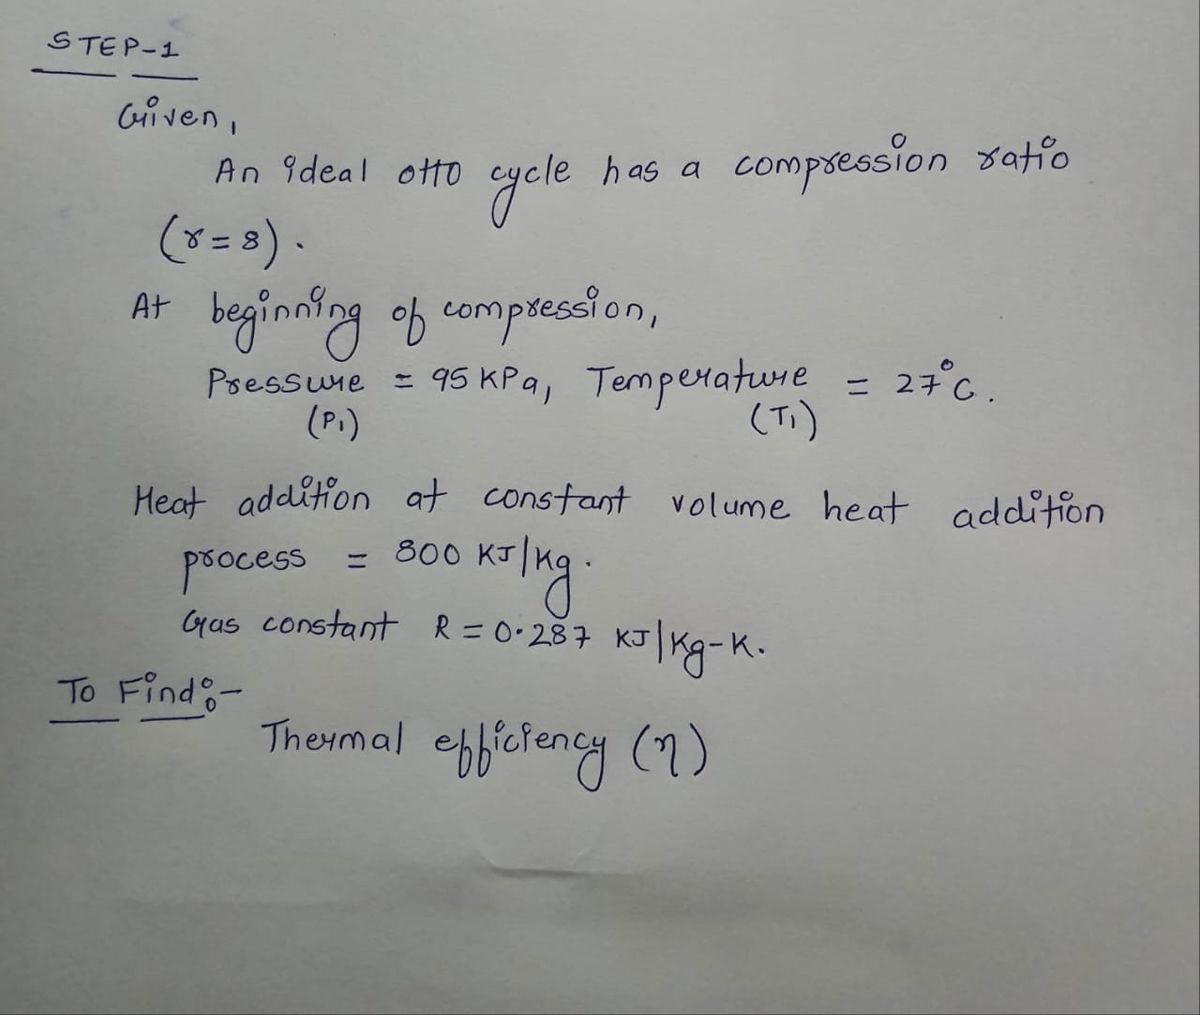 STEP-1
Given,
An ideal otto cycle has a compression ratio
(r=8).
At beginning of compression,
Pressure = 95 KPa, Temperature = 27°C.
(P1) (T1)
Heat addition at constant volume heat addition
process = 800 KJ/Kg.
Gas constant R = 0.287 KJ/Kg-K.
To Find:-
Thermal efficiency (η)